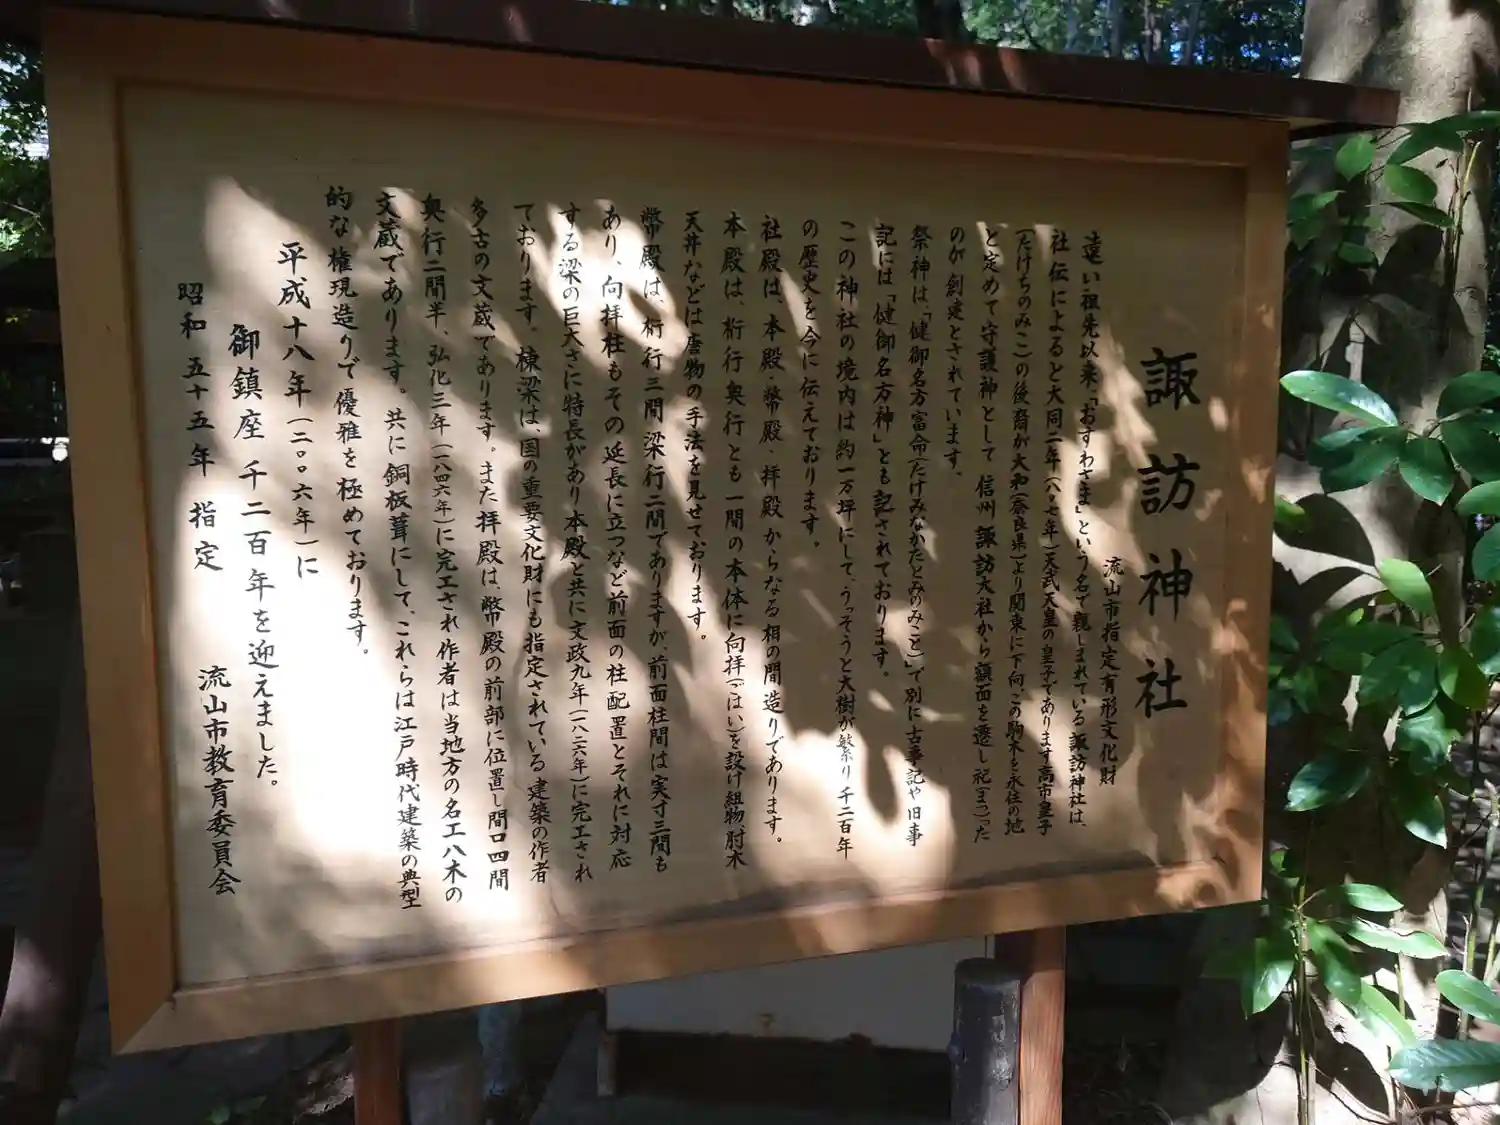 諏訪神社
流山市指定有形文化財
遠い祖先以来「おすわさま」という名で親しまれている諏訪神社は、
社伝によると大同二年(八〇七年)天武天皇の皇子であります高市皇子
(たけちのみこ)の後裔が大和(奈良県)より関東に下向この駒木を永住の地
と定めて守護神として信州諏訪大社から額面を遷し祀(まつ)った
のが創建とされています。
祭神は、「健御名方富命(たけみなかたとみのみこと)」で別に古事記や旧事
記には「健御名方神」とも記されております。
この神社の境内は約一万坪にして、うっそうと大樹が繁り千二百年
の歴史を今に伝えております。
社殿は、本殿、幣殿、拝殿からなる相の間造りであります。
本殿は、桁行奥行とも一間の本体に向拝(ごはい)を設け組物肘木
天井などは唐物の手法を見せております。
幣殿は、桁行三間梁行二間でありますが、前面柱間は実寸三間も
あり、向拝柱もその延長に立つなど前面の柱配置とそれに対応
する梁の巨大さに特長があり本殿と共に文政九年(一八二六年)に完工され
ております。棟梁は、国の重要文化財にも指定されている建築の作者
多古の文蔵であります。また拝殿は、幣殿の前部に位置し間口四間
奥行二間半、弘化三年(一八四六年)に完工され作者は当地方の名工八木の
文蔵であります。共に銅板葺にして、これらは江戸時代建築の典型
的な権現造りで優雅を極めております。
平成十八年(二〇〇六年)に
御鎮座千二百年を迎えました。
昭和五十五年 指定 流山市教育委員会